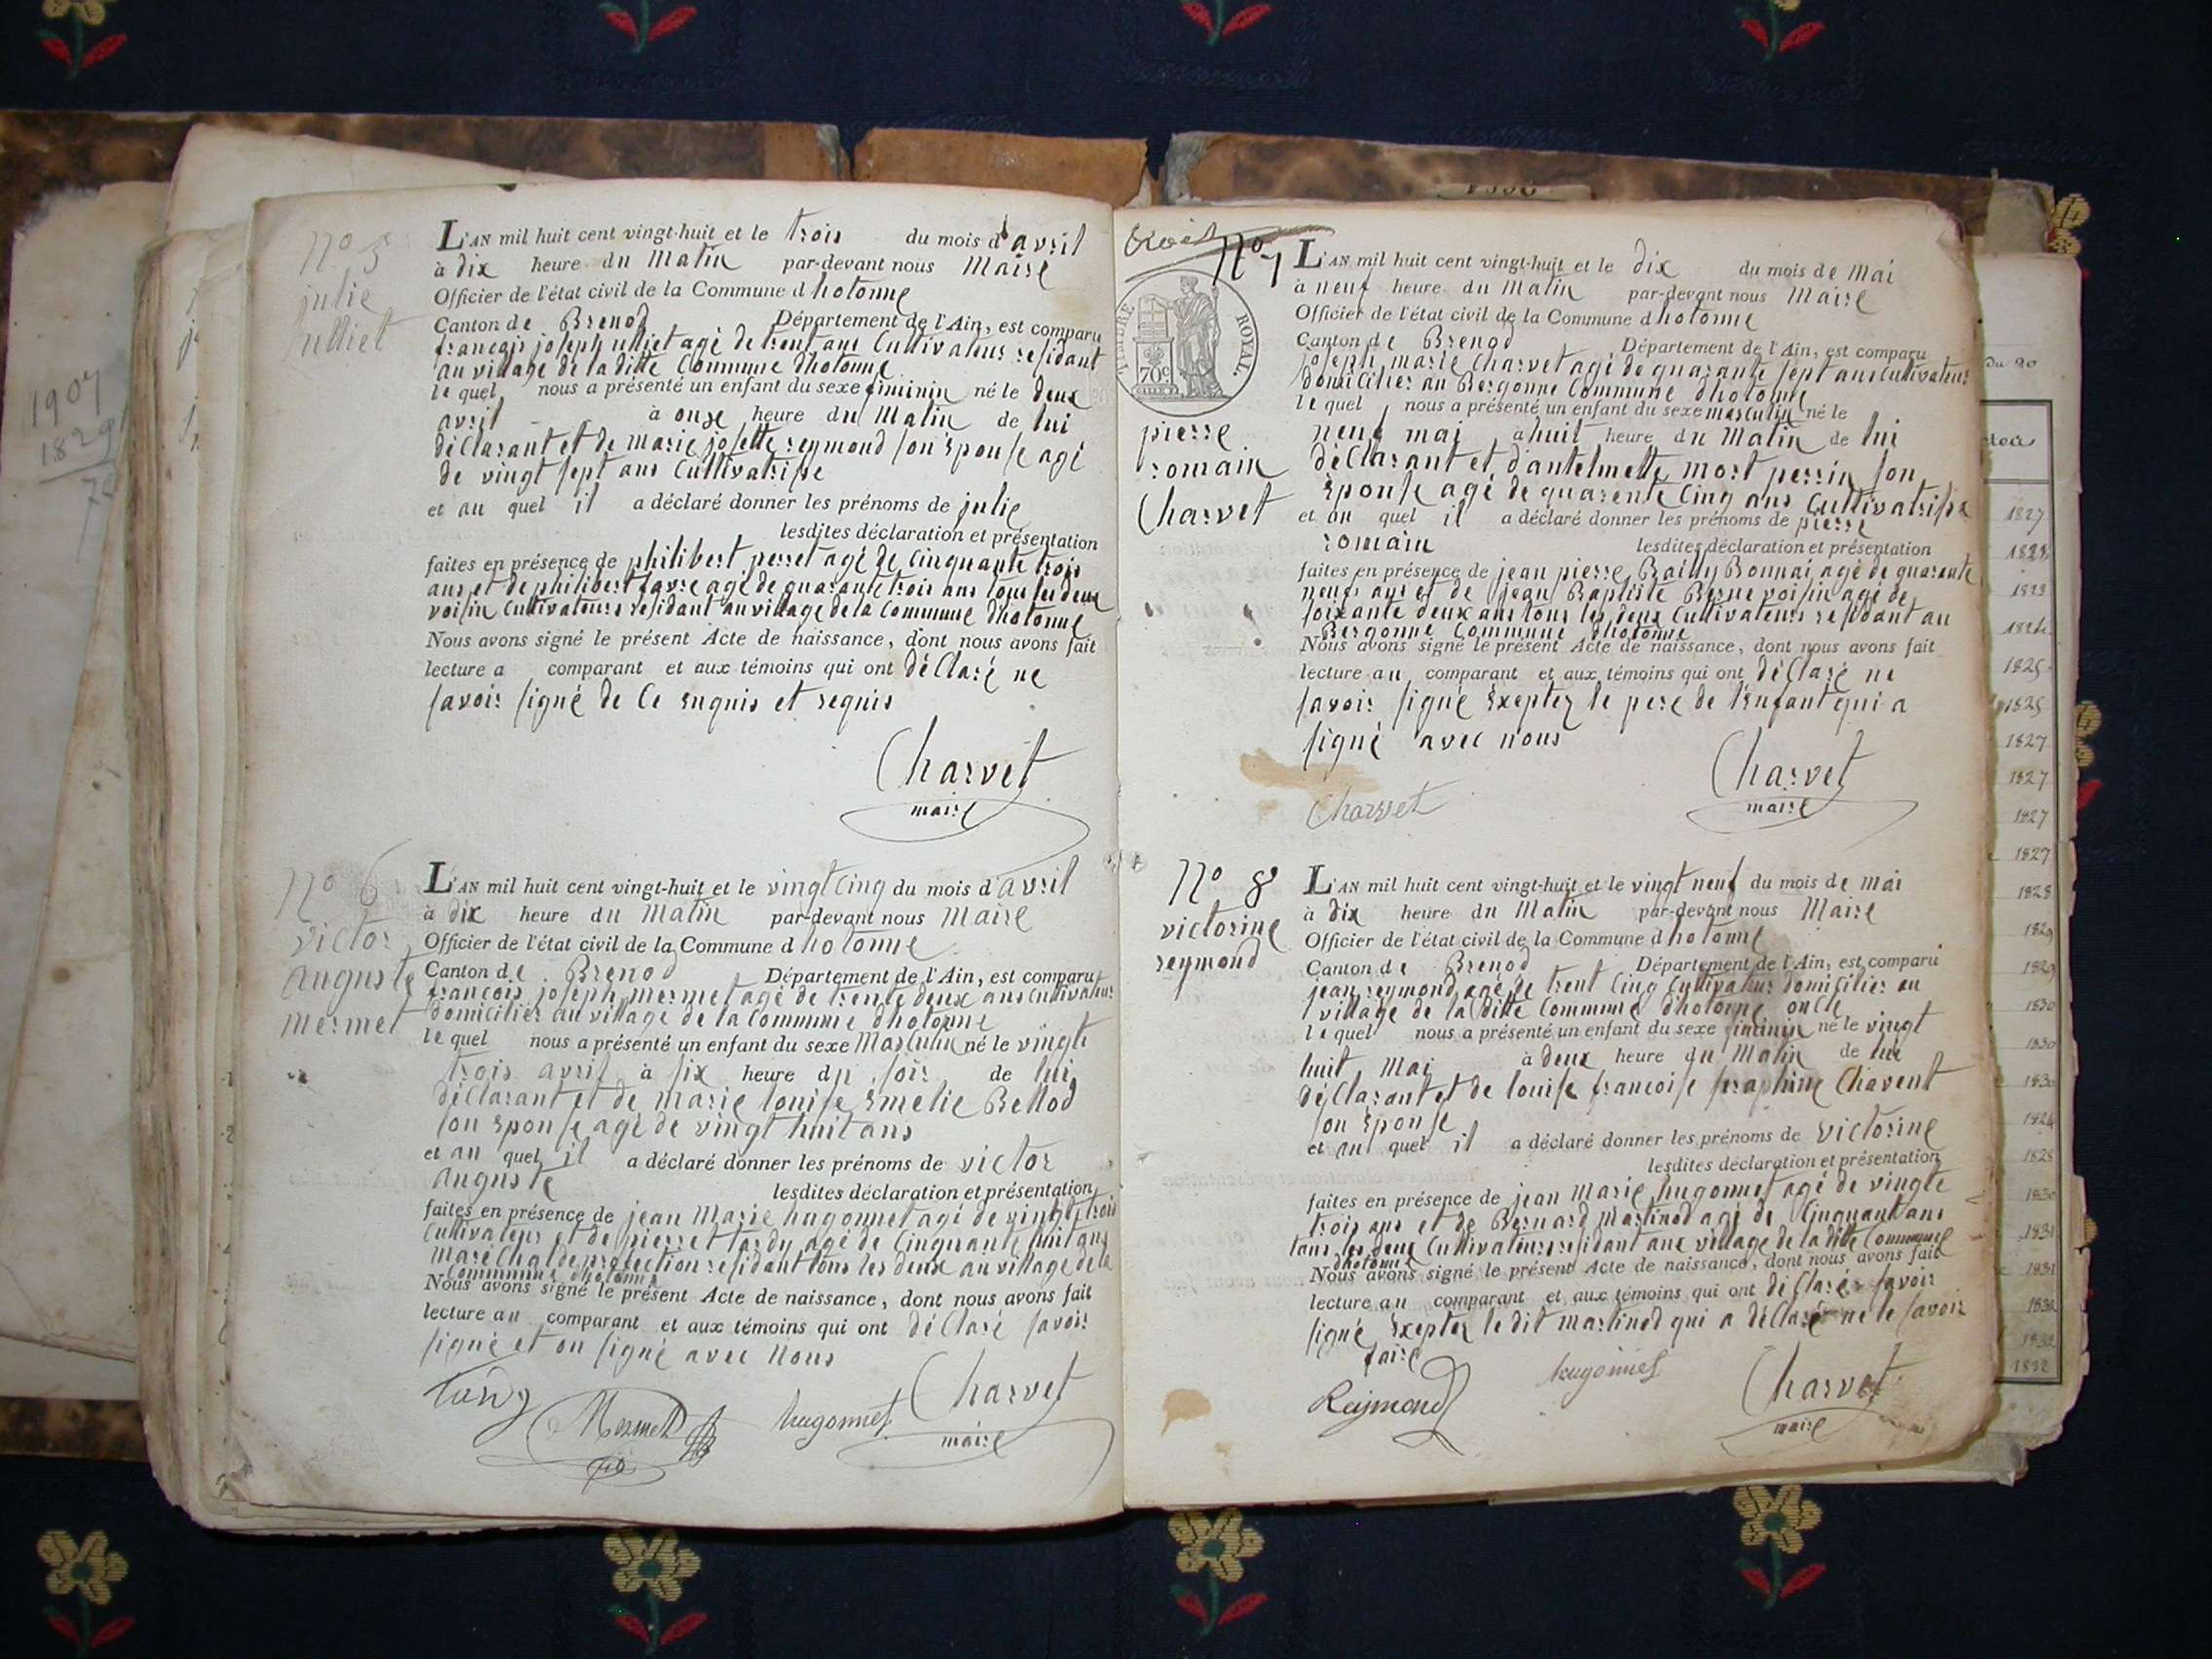 N° 5
julie
ulliet
L'AN mil huit cent vingt-huit et le trois du mois d'avril
à dix heure du Matin par-devant nous Maire
Officier de l'état civil de la Commune d hotonne
Canton de Brenod Département de l'Ain, est comparu
francois joseph ulliet agé de trent ans Cultivateur residant
au village de la ditte Commune dhotonne
le quel nous a présenté un enfant du sexe féminin né le deux
avril à onze heure du Matin de lui
déClarant et de marie josette reymond son Epouse agé
de vingt sept ans Cultivatrise
et au quel il a déclaré donner les prénoms de julie
lesdites déclaration et présentation
faites en présence de philibert perret agé de Cinquante trois
ans et de philibert favre agé de quarante trois ans tous les deux
voisin Cultivateurs residant au village de la Commune dhotonne
Nous avons signé le présent Acte de naissance, dont nous avons fait
lecture a comparant et aux témoins qui ont déClaré ne
savoir signé de Ce enquis et requis
Charvet
maire
N° 6
victor
auguste
mermet
L'AN mil huit cent vingt-huit et le vingt Cinq du mois d'avril
à dix heure du Matin par-devant nous Maire
Officier de l'état civil de la Commune d hotonne
Canton de Brenod Département de l'Ain, est comparu
francois joseph mermet agé de trente deux ans Cultivateur
domicilier au village de la Commune dhotonne
le quel nous a présenté un enfant du sexe Masculin né le vingt
trois avril à six heure du soir de lui
déClarant et de marie louise Emelie Bellod
son Epouse agé de vingt huit ans
et au quel il a déclaré donner les prénoms de victor
auguste
lesdites déclaration et présentation
faites en présence de jean Marie hugonnet agé de vingt trois
Cultivateur et de pierre tardy agé de Cinquante huit ans
maréChal de profection residant tous les deux au village de la
Commune dhotonne
Nous avons signé le présent Acte de naissance, dont nous avons fait
lecture au comparant et aux témoins qui ont déClaré savoir
signé et on signé avec Nous
Tardy Mermet hugonnet Charvet
maire
N° 7
TIMBRE ROYAL.
70c
pierre
romain
Charvet
L'AN mil huit cent vingt-huit et le dix du mois de Mai
à neuf heure du Matin par-devant nous Maire
Officier de l'état civil de la Commune d hotonne
Canton de Brenod Département de l'Ain, est comparu
joseph marie Charvet agé de quarante sept ans Cultivateur
domicilier au Bergonne Commune dhotonne
le quel nous a présenté un enfant du sexe masculin né le
neuf mai à huit heure du Matin de lui
déClarant et d'antelmette mort perrin son
Epouse agé de quarente Cinq ans Cultivatrise
et au quel il a déclaré donner les prénoms de pierre
romain lesdites déclaration et présentation
faites en présence de jean pierre Bailly Bonnai agé de quarente
neuf ans et de jean Baptiste Berne voisin agé de
soixante deux ans tous les deux Cultivateurs residant au
Bergonne Commune dhotonne
Nous avons signé le présent Acte de naissance, dont nous avons fait
lecture au comparant et aux témoins qui ont déClaré ne
savoir signé Exeptez le pere de l'enfant qui a
signé avec nous
Charvet
Charvet
maire
N° 8
victorine
reymond
L'AN mil huit cent vingt-huit et le vingt neuf du mois de mai
à dix heure du Matin par-devant nous Maire
Officier de l'état civil de la Commune d hotonne
Canton de Brenod Département de l'Ain, est comparu
jean reymond agé de trent Cinq Cultivateur domicilier au
village de la ditte Commune dhotonne oncle
le quel nous a présenté un enfant du sexe féminin né le vingt
huit Mai à deux heure du Matin de lui
déClarant et de louise francoise seraphine Chavent
son Epouse
et au quel il a déclaré donner les prénoms de victorine
lesdites déclaration et présentation
faites en présence de jean Marie hugonnet agé de vingte
trois ans et de Bernard martinod agé de Cinquant ans
tous les deux Cultivateurs residant aux village de la ditte Commune
dhotonne
Nous avons signé le présent Acte de naissance, dont nous avons fait
lecture au comparant et aux témoins qui ont déClaré savoir
signé Exeptez le dit martinod qui a déClaré ne le savoir
faire
Reymond hugonnet Charvet
maire
1907
1829
du 20
1827
1828
1825
1825
1827
1827
1827
1827
1828
1829
1829
1830
1830
1830
1828
1830
1831
1831
1832
1832
1832